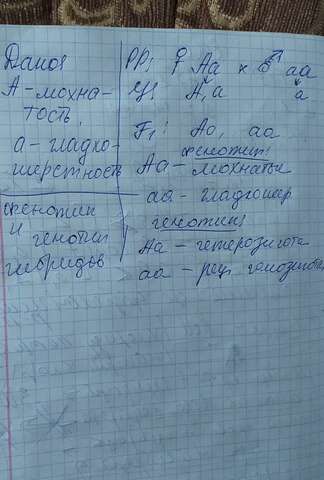 Дано:
А - мохна-
тость,
а - гладко-
шерстность
Фенотип
и генотип
гибридов
PP: ♀ Аа × ♂ аа
G: А, а а
F₁: Аа, аа
фенотип:
Аа - мохнатые
аа - гладкошер
генотип:
Аа - гетерозигота
аа - рец. гомозигота